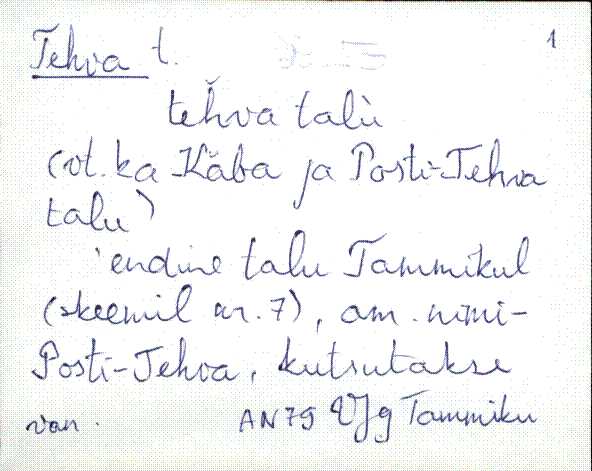 Tehva t. 1
teh̆va talù
(vt. ka Käba ja Posti-Tehva
talu)
'endine talu Tammikul
(skeemil nr. 7), am. nimi-
Posti-Tehva, kutsutakse
van. AN79 VJg Tammiku